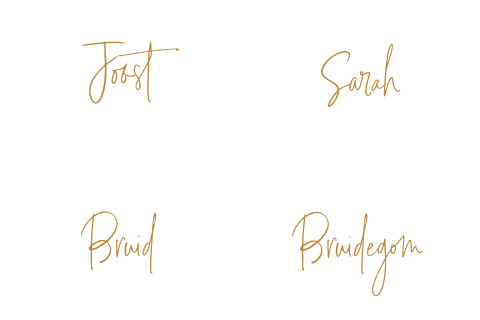 Joost Sarah
Bruid Bruidegom